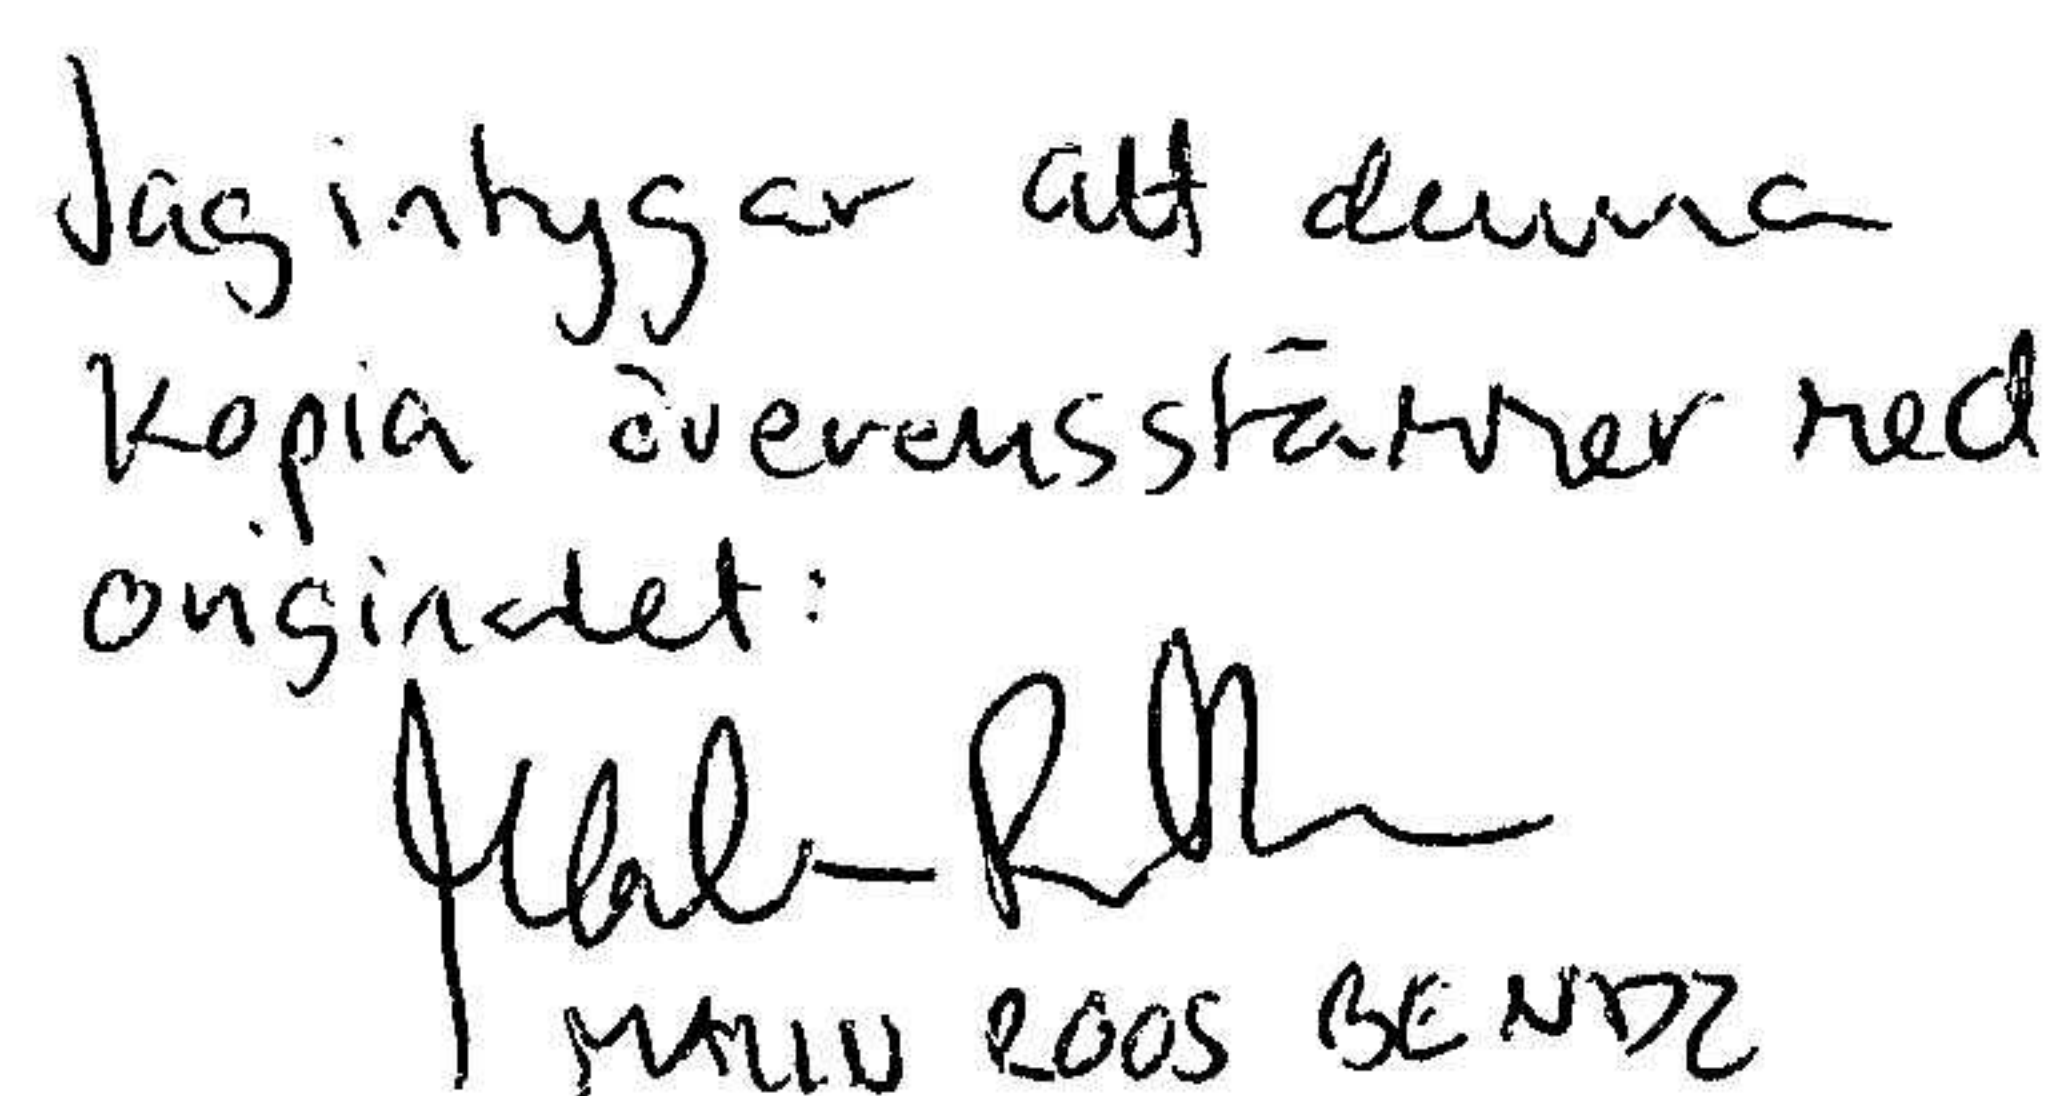 Jag intygar att denna
kopia överensstämmer med
originalet:
MALIN ROOS BENDZ